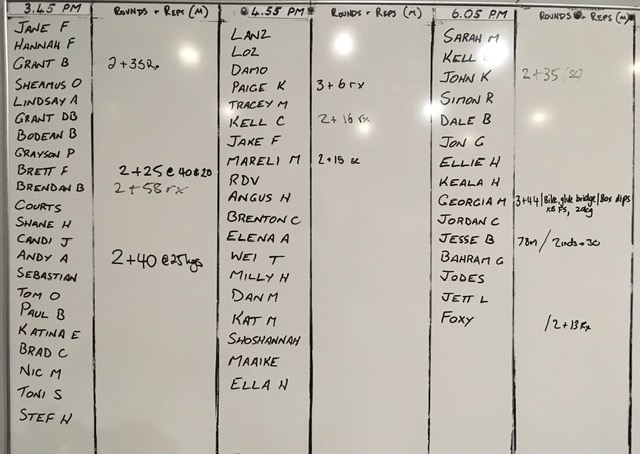 3.45 PM ROUNDS + REPS (M)
JANE F
HANNAH F
GRANT B 2+35 Rx
SHEAMUS O
LINDSAY A
GRANT DB
BODEAN B
GRAYSON P
BRETT F 2+25 @ 40 & 20
BRENDAN B 2+58 rx
COURTS
SHANE H
CANDI J
ANDY A 2+40 @ 25kgs
SEBASTIAN
TOM O
PAUL B
KATINA E
BRAD C
NIC M
TONI S
STEF H
@ 4.55 PM ROUNDS + REPS (M)
LANZ
LOZ
DAMO
PAIGE K 3+6 rx
TRACEY M
KELL C 2+16 rx
JAKE F
MARELI M 2+15 sc
RDV
ANGUS H
BRENTON C
ELENA A
WEI T
MILLY H
DAN M
KAT M
SHOSHANNAH
MAAIKE
ELLA H
6.05 PM ROUNDS + REPS (M)
SARAH M
KELL
JOHN K 2+35 (sc)
SIMON R
DALE B
JON G
ELLIE H
KEALA H
GEORGIA M 3+44/Bike, glute bridge/Box dips
KB FS, 20kg
JORDAN C
JESSE B 78m / 2rnds
BAHRAM G
JODES
JETT L
FOXY /2+13 Rx